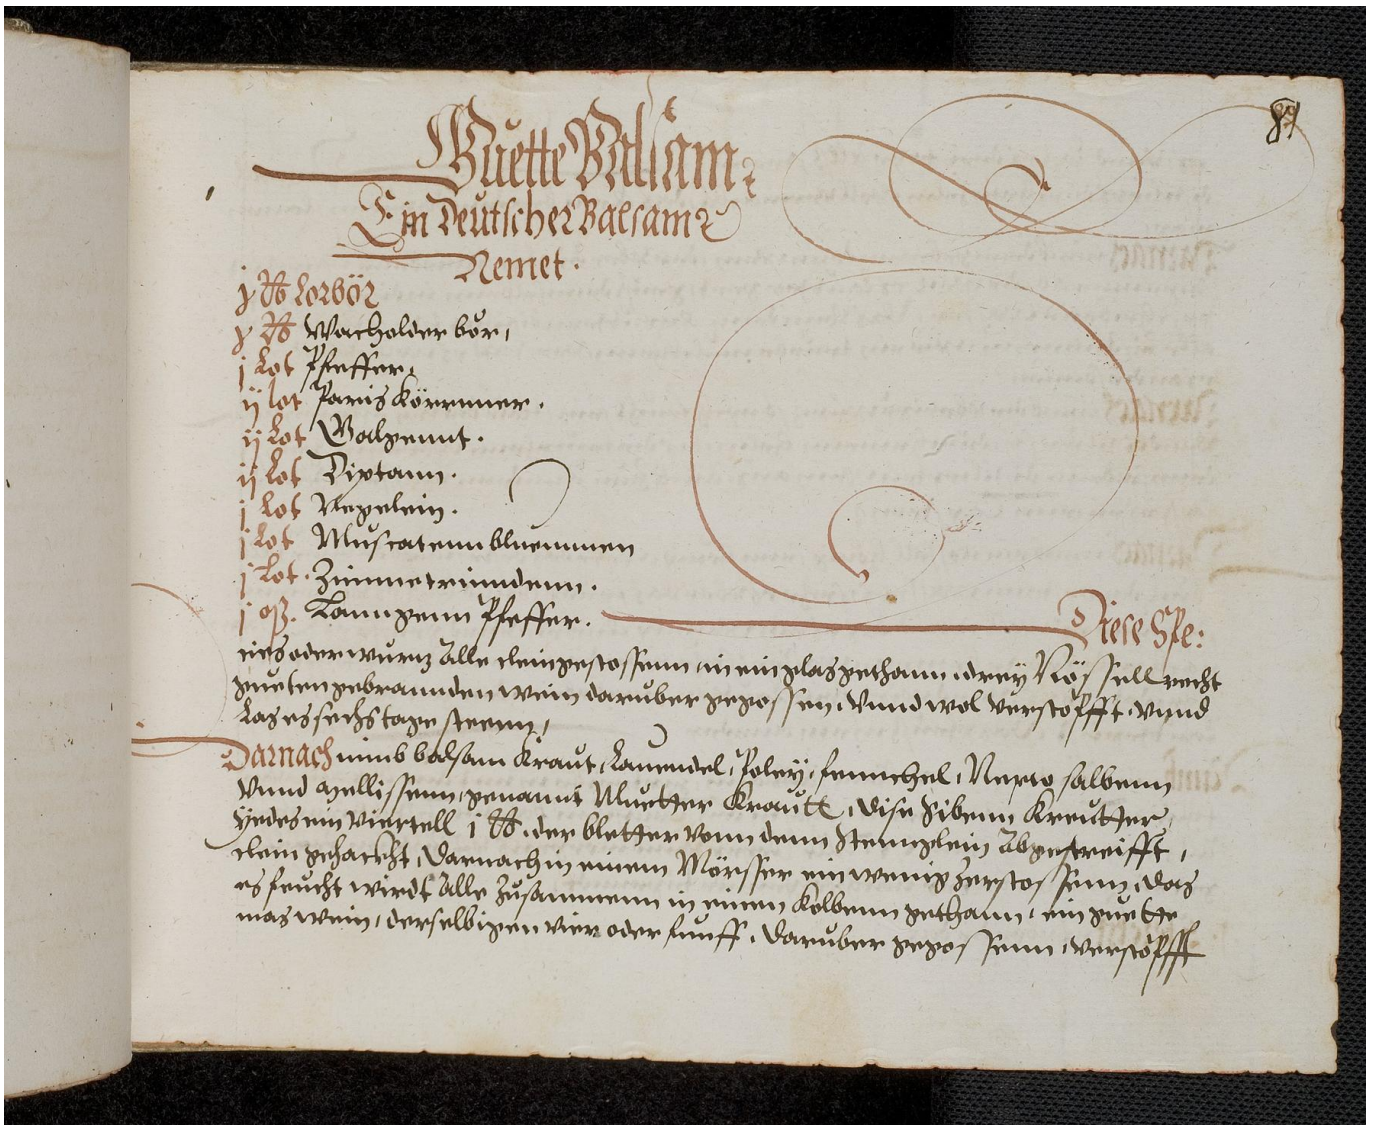 89
Guette Balsam
Ein Deutscher Balsam
Nemet.
j ℔ Lorbör
j ℔ Wacholder bör,
j Lot Pfeffer,
ij lot Paris Körrnner.
ij Lot Galgennt.
ij Lot Diptann.
j Lot Negelein.
j Lot Muscatennbluemmen
j Lot. Zimmetrinndenn.
j Lanngenn Pfeffer. Diese Spe:
cies oder wurtz Alle clein gestossenn, in ein glas gethann, drey Nössell recht
gueten gebrannden wein daruber gegossen, Vnnd wol verstopfft, vnnd
Las es sechs tage steenn,
Darnach nimb balsam Kraut, Lauendel, Poley, fennchel, Nepto salbenn
Vnnd Mellissenn, genannt Muetter Krautt, dise Sibenn Kreutter,
Yedes ein viertell j ℔. der bletter vonn denn Stennglein Abgestreifft,
clein gehackht, Darnach in einem Mörsser ein wenig zerstossenn, das
es feucht wirdt Alle Zusammenn in einen Kolbenn gethann, ein guette
mas wein, derselbigen vier oder funff, daruber gegossenn, verstopfft